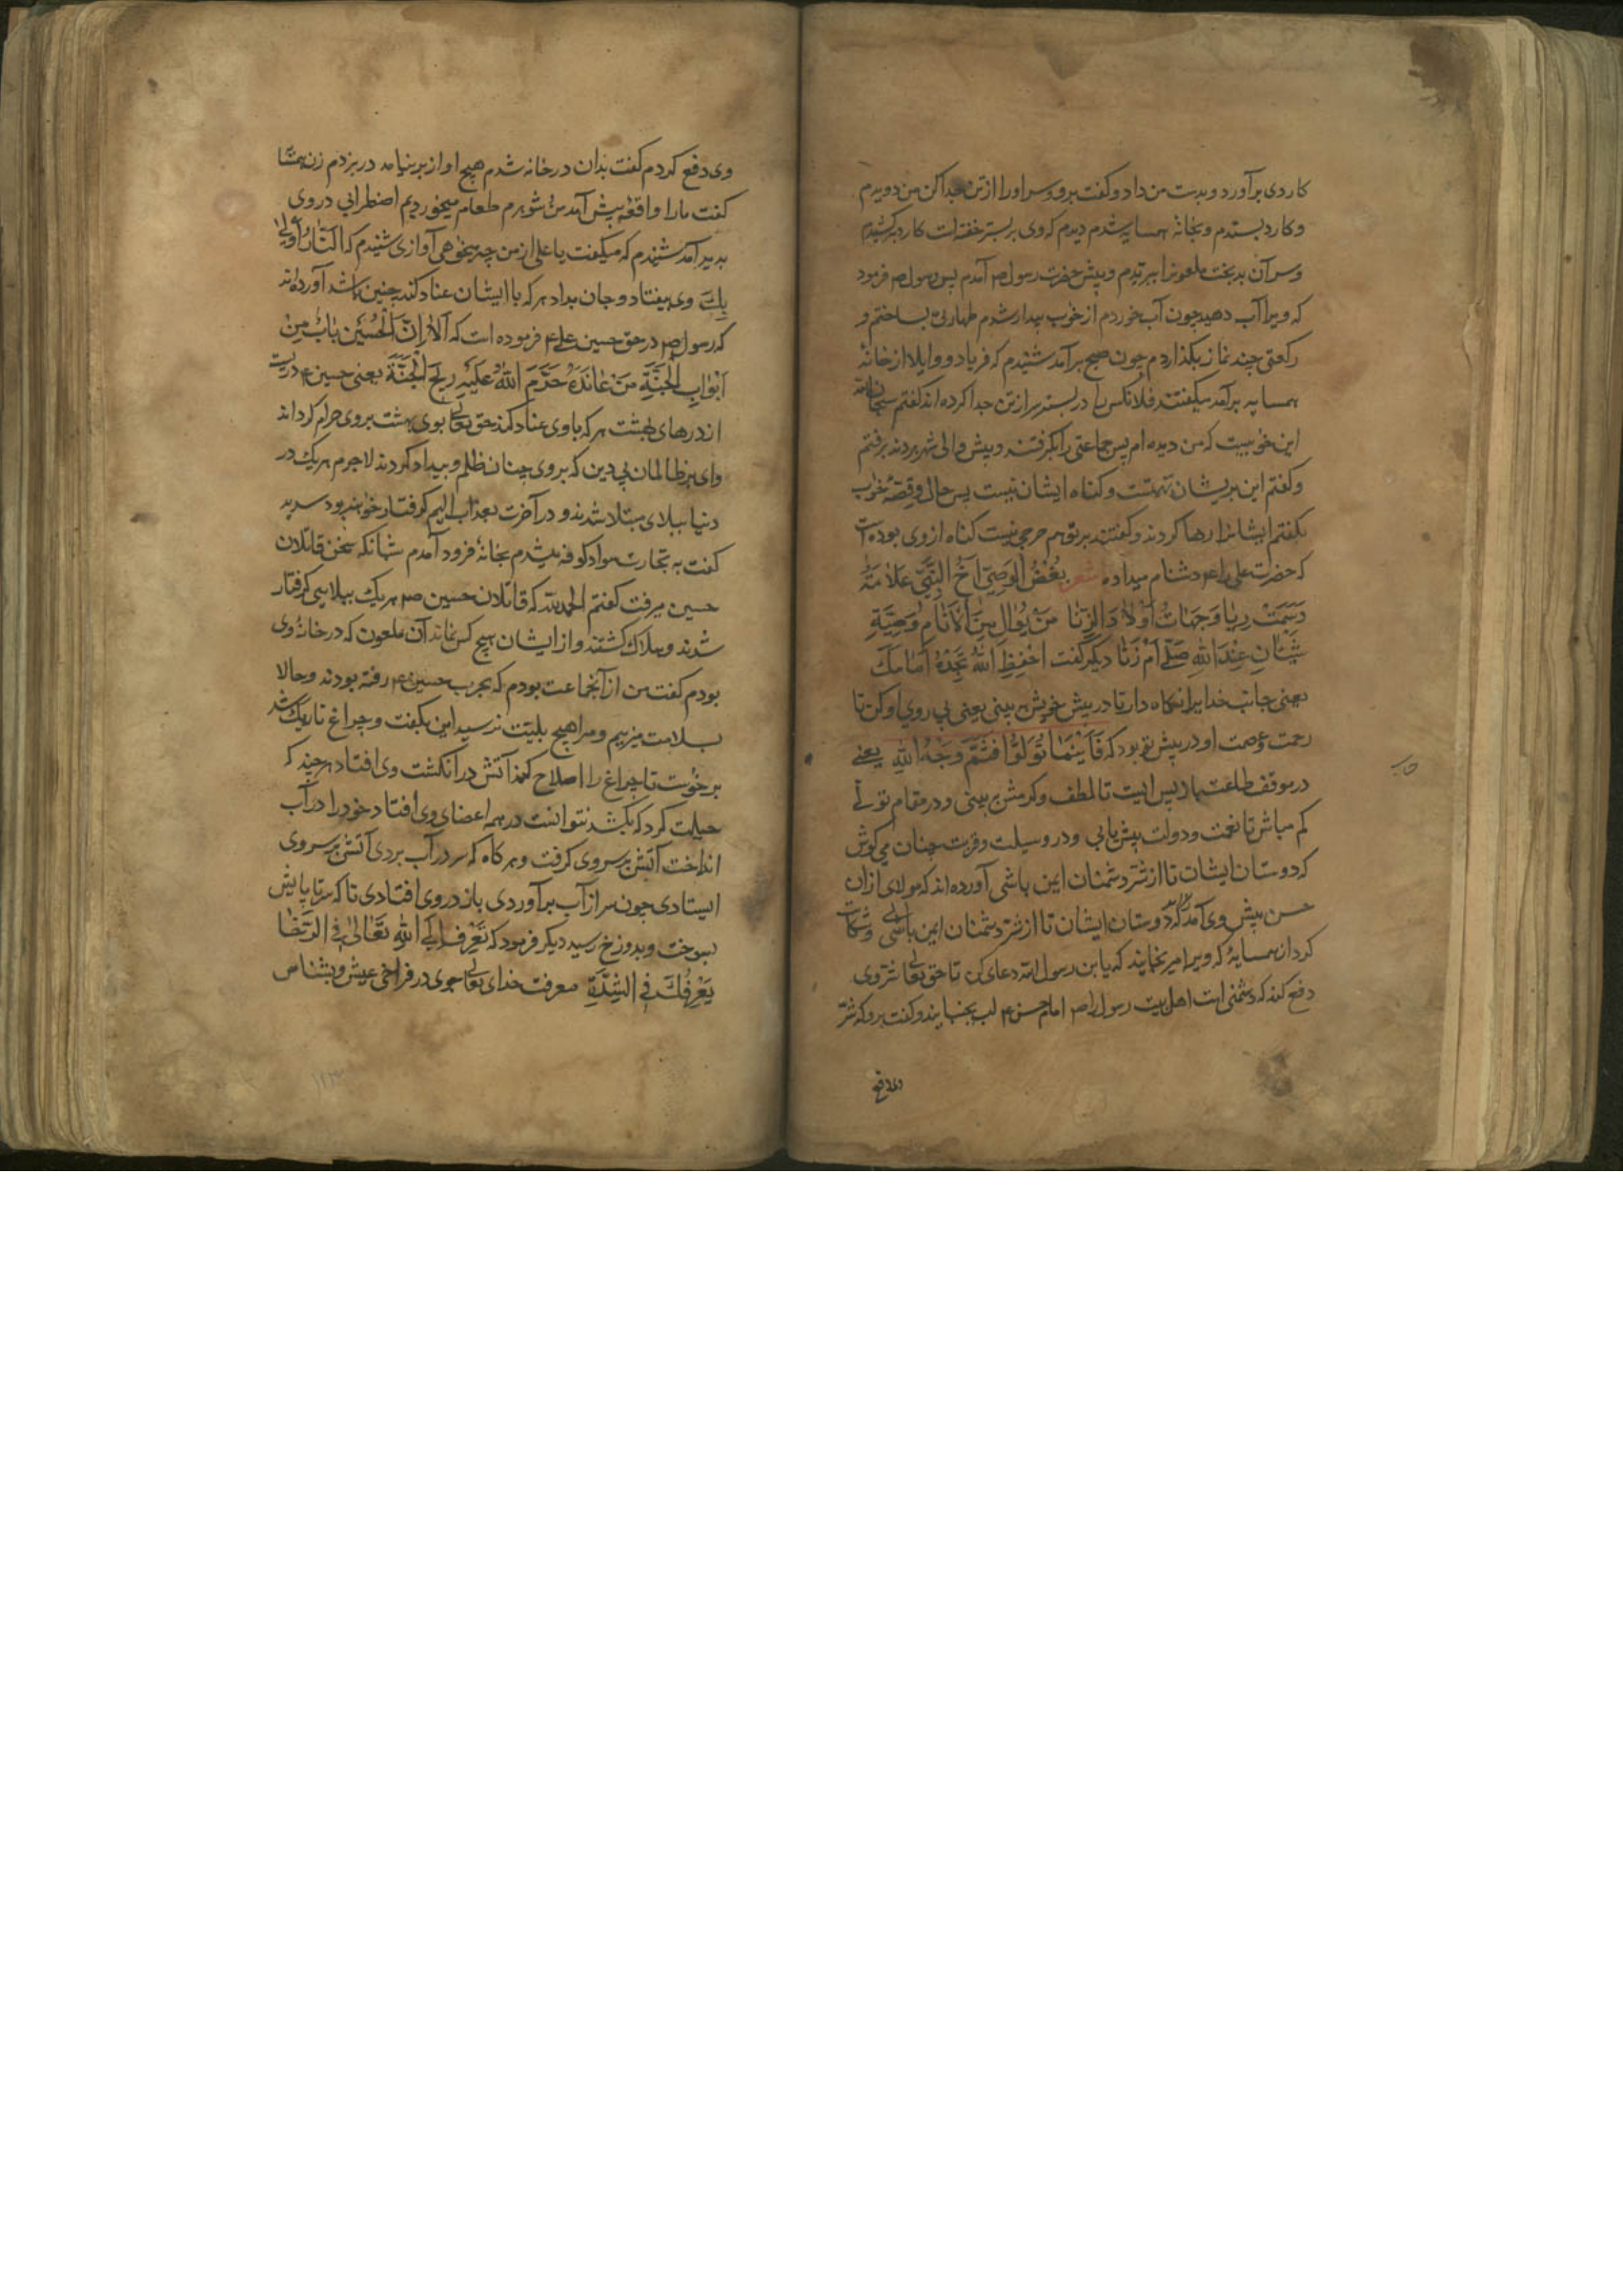 کاردی برآورد و بدست من داد و کفت برو و سر اورا از تن جدا کن من دویدم
و کارد بستدم و بخانه همسایه شدم دیدم که وی بر بستر خفته است کارد برکشیدم
و سر آن بدبخت ملعونرا ببریدم و پیش حضرت رسول ص آمدم پس رسول ص فرمود
که ویرا آب دهید چون آب خوردم از خواب بیدار شدم طهارتی بساختم و
رکعتی چند نماز بکذاردم چون صبح برآمد شنیدم که فریاد و واویلا از خانهٔ
همسایه برآمد میکفتند فلانکس را در بستر سر از تن جدا کرده اند کفتم سبحان الله
این خوابیست که من دیده ام پس جماعتی را بکرفتند و پیش والی شهر بردند برفتم
و کفتم این بریشان تهمتست و کناه ایشان نیست پس حال و قصهٔ خواب
بکفتم ایشانرا رها کردند و کفتند بر تو هم حرجی نیست کناه از وی بوده است
که حضرت علی را ع دشنام میداده شعر بُغْضُ الوَصِیّ اَخْ النَّبِیّ عَلَامَةٌ
وَسَمَتْ وَجَهَاتُ اَوْلَادِ الزِّنَا مَنْ یُوَالِ بَیْنَ الْاَنَامِ وَصِیَّهِ
سِیَّانِ عِنْدَ اللهِ صَلَّی اَمْ زَنَا دیکر کفت اِحْفِظِ اللهَ تَجِدْهُ اَمَامَکَ
یعنی جانب خدایرا نکاه دار تا در پیش خویش ببینی یعنی پی روی او کن تا
رحمت و عصمت او در پیش تو بود که فَاَیْنَمَا تُوَلُّوْا فَثَمَّ وَجْهُ اللهِ یعنی
در موقف طاعت باز پس ایست تا لطف و کرمش ببینی و در مقام تولی
کم مباش تا نعمت و دولت بیش یابی و در وسیلت و قربت چنان می کوش
که دوستان ایشان تا از شر دشمنان ایمن باشی آورده اند که مولای از ان
حسن پیش وی آمد که دوستان ایشان تا از شر دشمنان ایمن باشی و شکایت
کرد از همسایهٔ که ویرا میرنجانید که یا بن رسول الله دعای کن تا حق تعالی شر وی
دفع کند که دشمنی است اهل بیت رسول را ص امام حسن ع لب بجنبانید و کفت برو که شر
وی دفع کردم کفت بدان در خانه شدم هیچ اواز برنیامد در بزدم زن همسایه
کفت مارا واقعهٔ پیش آمد من و شوهرم طعام میخوردیم اضطرابی در وی
بدید آمد شنیدم که میکفت یا علی از من چه میخواهی آوازی شنیدم که اَلنَّارُ اَوْلیٰ
بِکَ وی بیفتاد و جان بداد هر که با ایشان عناد کند چنین باشد آورده اند
که رسول ص در حق حسین علی ع فرموده است که اَلَا اِنَّ الْحُسَیْن بَابٌ مِنْ
اَبْوَابِ الْجَنَّةِ مَنْ عَانَدَهُ حَرَّمَ اللهُ عَلَیْهِ رِیْحَ الْجَنَّةَ یعنی حسین ع دریست
از درهای بهشت هر که با وی عناد کند حق تعالی بوی بهشت بروی حرام کرداند
وای بر ظالمان بی دین که بر وی چنان ظلم و بیداد کردند لاجرم هر یک در
دنیا ببلای مبتلا شدند و در آخرت بعذاب الیم کرفتار خواهند بود
کفت به تجارت سواد کوفه میشدم بخانهٔ فرود آمدم شبانکه سخن قاتلان
حسین میرفت کفتم الحمد لله که قاتلان حسین هر یک ببلایی کرفتار
شدند و هلاک کشتند و از ایشان هیچ کس نماند آن ملعون که در خانهٔ وی
بودم کفت من از آنجماعت بودم که بحرب حسین ع رفته بودند و حالا
بسلامت میزییم و مرا هیچ بلیت نرسید این بکفت و چراغ تاریک شد
برخواست تا چراغ را اصلاح کند آتش در انکشت وی افتاد هرچند که
حیلت کرد که بکشد نتوانست در همه اعضای وی افتاد خود را در آب
انداخت آتش بر سر وی کرفت و هرکاه که سر در آب بردی آتش بر سر وی
ایستادی چون سر از آب برآوردی باز در وی افتادی تا که سر تا پایش
بسوخت و بدوزخ رسید دیکر فرمود که تَعَرَّفْ اِلَی اللهِ تَعَالیٰ فِی الرَّخَا
یَعْرِفُکَ فِی الشِّدَّةِ معرفت خدای تعالی جوی در فراخی عیش و بشناس